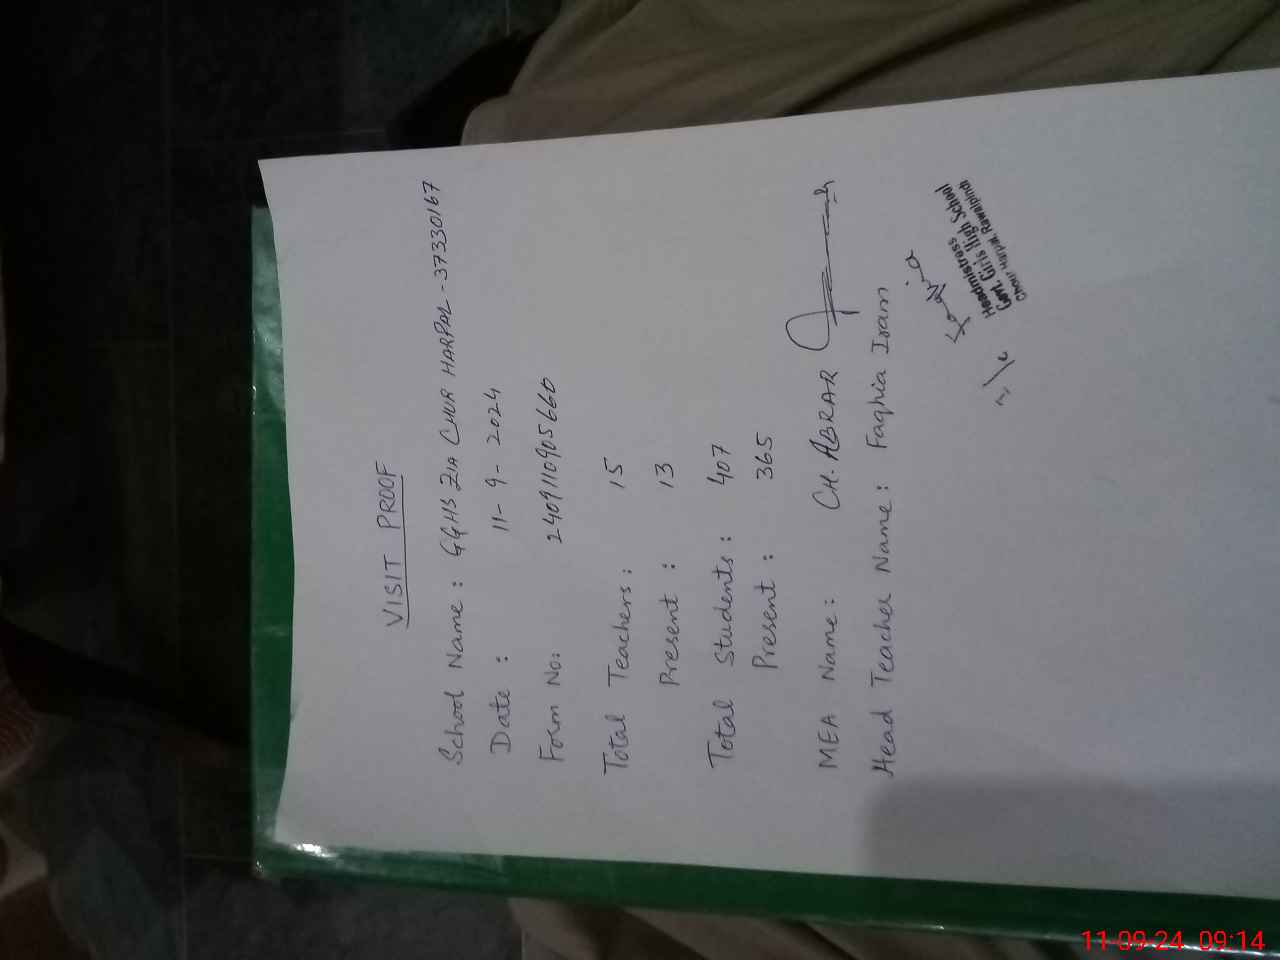 VISIT PROOF
School Name : GGHS ZIA CHUR HARPAL - 37330167
Date : 11-9-2024
Form No: 240911090566D
Total Teachers : 15
Present : 13
Total Students : 407
Present : 365
MEA Name : CH. ABRAR
Head Teacher Name : Faqhia Iram
Headmistress
Govt. Girls High School
Chour Harpal, Rawalpindi
11-09-24 09:14